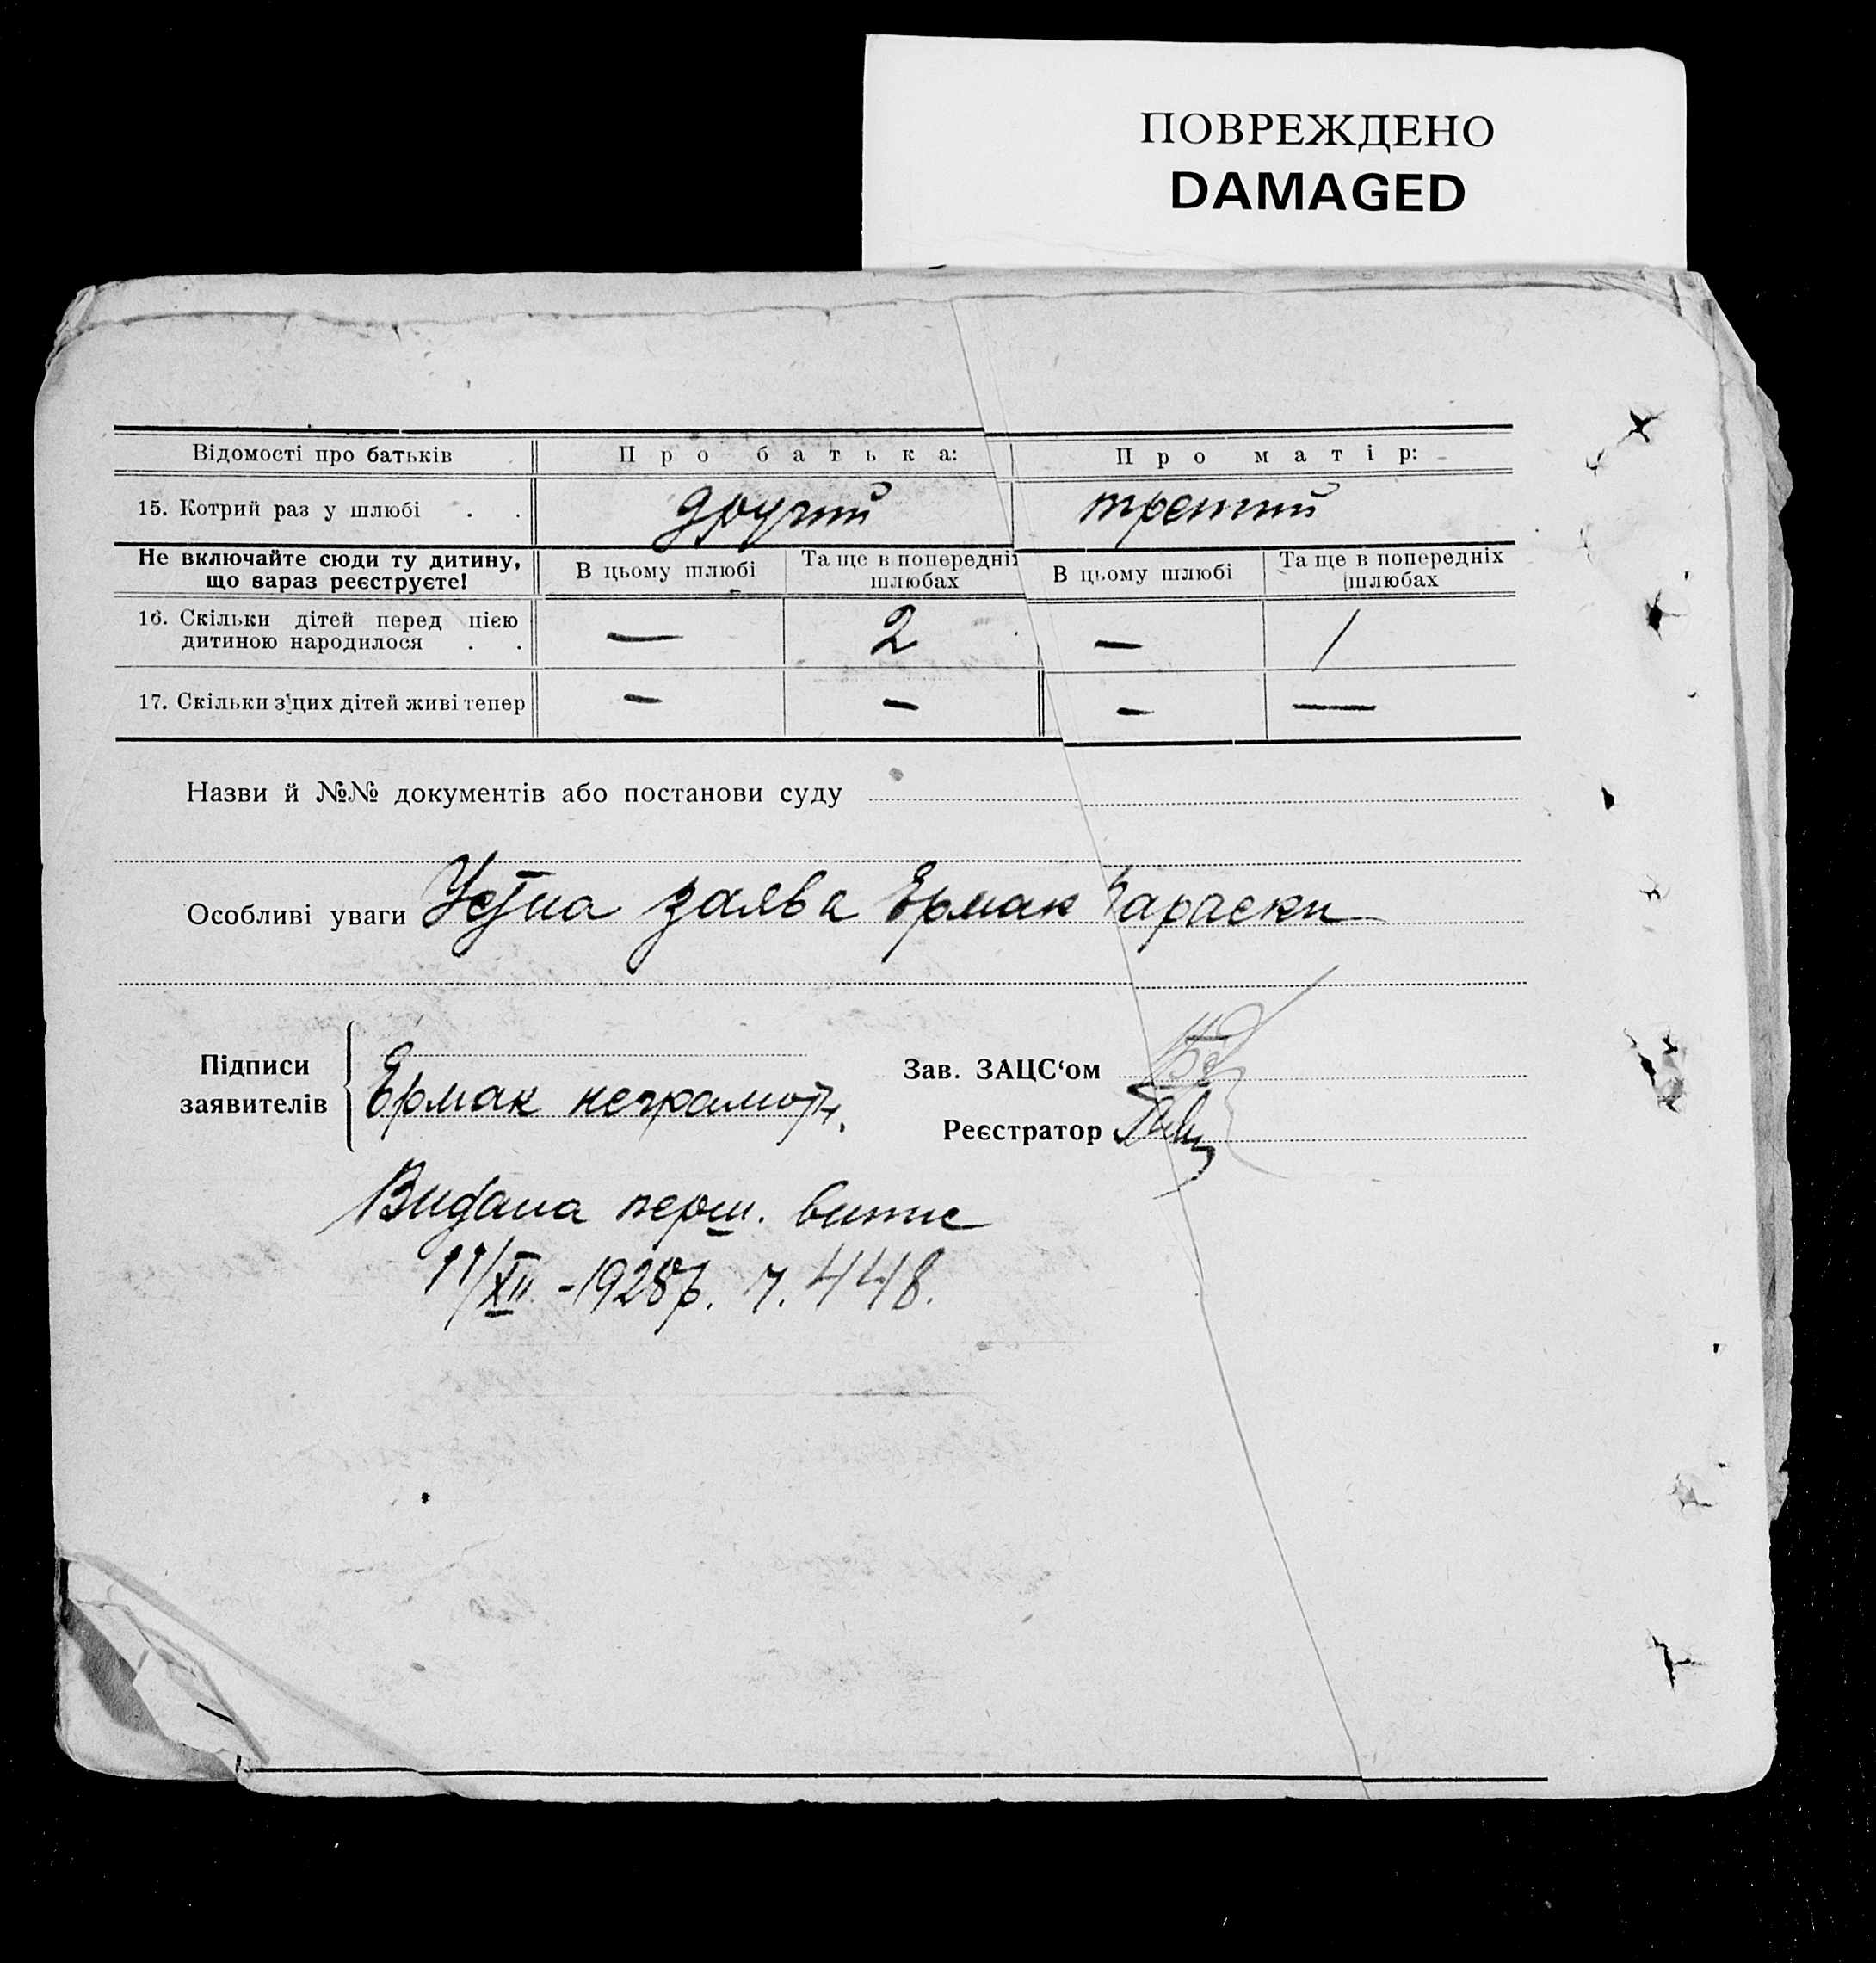 ПОВРЕЖДЕНО
DAMAGED
Відомості про батьків Про батька: Про матір:
15. Котрий раз у шлюбі . . другий третий
Не включайте сюди ту дитину, що вараз реєструєте! В цьому шлюбі Та ще в попередніх шлюбах В цьому шлюбі Та ще в попередніх шлюбах
16. Скільки дітей перед цією дитиною народилося . . — 2 — 1
17. Скільки з цих дітей живі тепер — — — —
Назви й №№ документів або постанови суду
Особливі уваги Устна заява Ермак Параски
Підписи заявителів Ермак неграмотн.
Зав. ЗАЦС‘ом
Реєстратор
Видана перш. випис
11/XII - 1928 р. ч. 448.